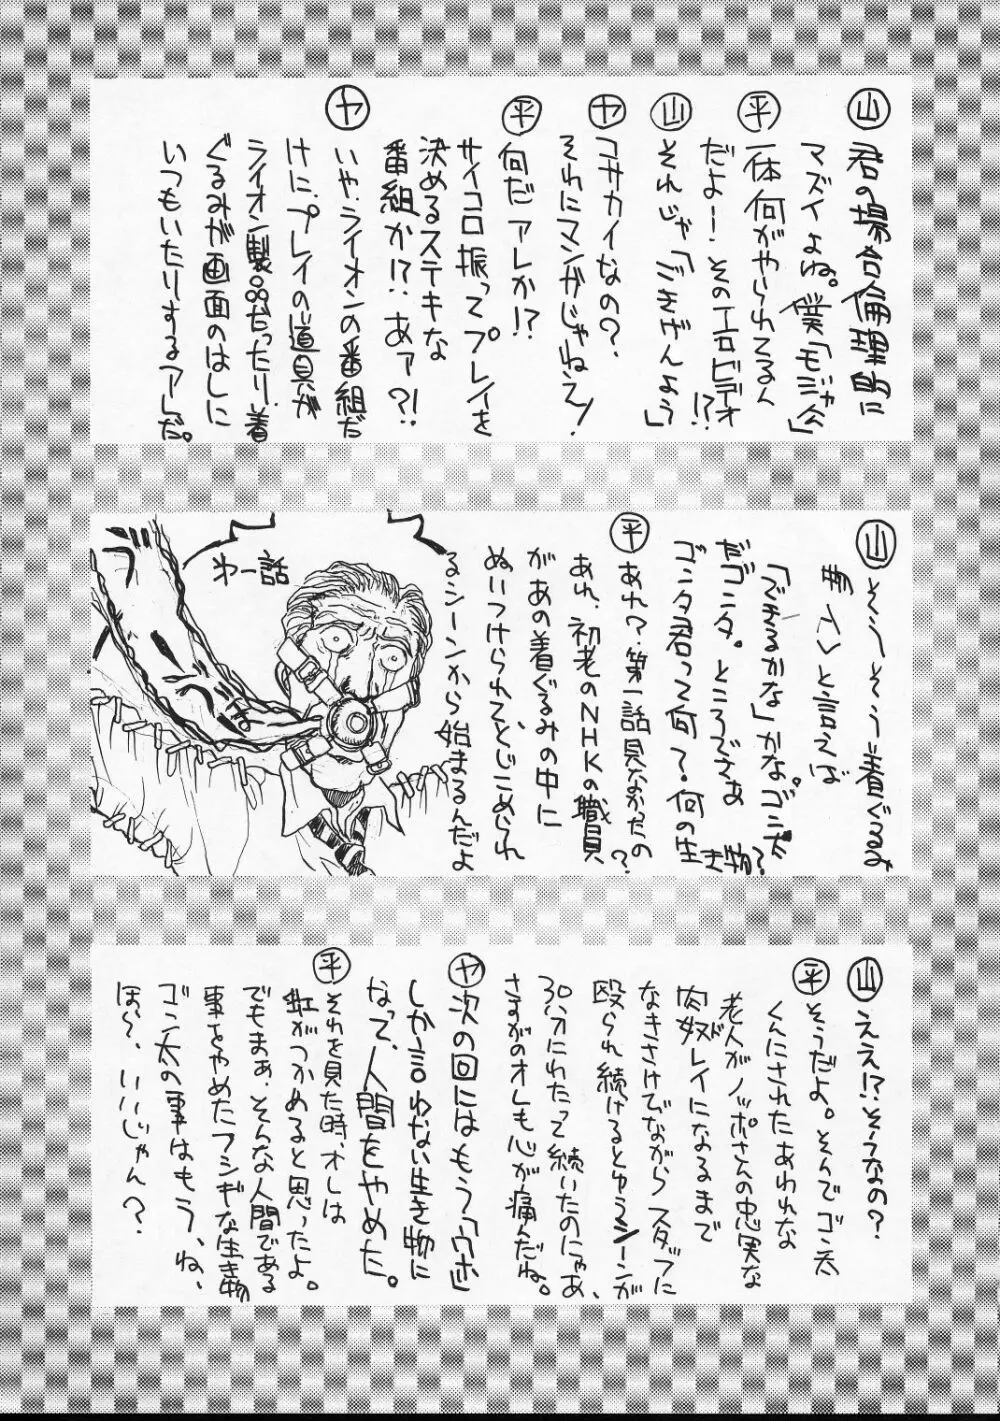 山 君の場合倫理的に
マズイよね。僕「モジャ公」
平 一体何がやられてるん
だよー!そのエロビデオ!?
山 それじゃ「ごきげんよう」
ヤ コサカイなの?
それにマンガじゃねえ!
平 何だアレか!?
サイコロ振ってプレイを
決めるステキな
番組か!?あァ?!
ヤ いや、ライオンの番組だ
けに、プレイの道具が
ライオン製品だったり、着
ぐるみが画面のはしに
いつもいたりするアレだ。
山 そうそう着ぐるみ
と言えば
「できるかな」かな。ゴン太
だゴン太。ところでさぁ
ゴン太君って何?何の生き物?
平 あれ?第一話見なかったの?
あれ、初老のNHKの職員
があの着ぐるみの中に
ぬいつけられて、とじこめられ
るシーンから始まるんだよ
第一話
山 ええ!?そうなの?
平 そうだよ。そんでゴン太
くんにされたあわれな
老人がノッポさんの忠実な
肉奴レイになるまで
なきさけびながらスタッフに
殴られ続けるとゆうシーンが
30分にわたって続いたのにゃあ、
さすがのオレも心が痛んだね。
ヤ 次の回にはもう「ウホ」
しか言わない生き物に
なって、人間をやめた。
平 それを見た時、オレは
虹がつかめると思ったよ。
でもまぁ、そんな人間である
事をやめたフシギな生き物
ゴン太の事はもう、ね、
ほら、いいじゃん?